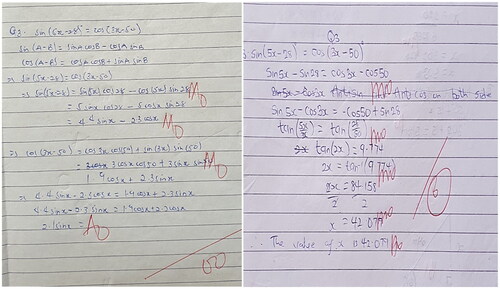 Q3. sin(5x-28)° = cos(3x-50)
sin(A-B) = sinA cosB - cosA sinB
cos(A-B) = cosA cosB + sinA sinB
=> sin(5x-28) = cos(3x-50)
=> sin(5x-28) = sin(5x) cos 28 - cos(5x) sin 28 M0
= 5 sinx cos28 - 5 cosx sin 28
= 4.4 sinx - 2.3 cosx M0
=> cos(3x-50) = cos 3x cos(50) + sin(3x) sin(50)
= 3cosx cos50 + 3 sinx sin50 M0
1.9cosx + 2.3sinx
=> 4.4 sinx - 2.3 cosx = 1.9cosx + 2.3sinx
4.4 sinx - 2.3 sinx = 1.9cosx + 2.3cosx
2.1sinx = A0
00
Q3
sin(5x-28) = cos(3x-50)°
Sin5x - Sin28 = cos3x - cos50
M0 in both side
Sin5x - Cos3x = -Cos50 + Sin28
tan(5x/3x) = tan(
tan(2x) = 9.774
2x = tan⁻¹(9.774)
2x = 84.158
2 2
x = 42.079 M0
∴ The value of x is 42.079 A0
0